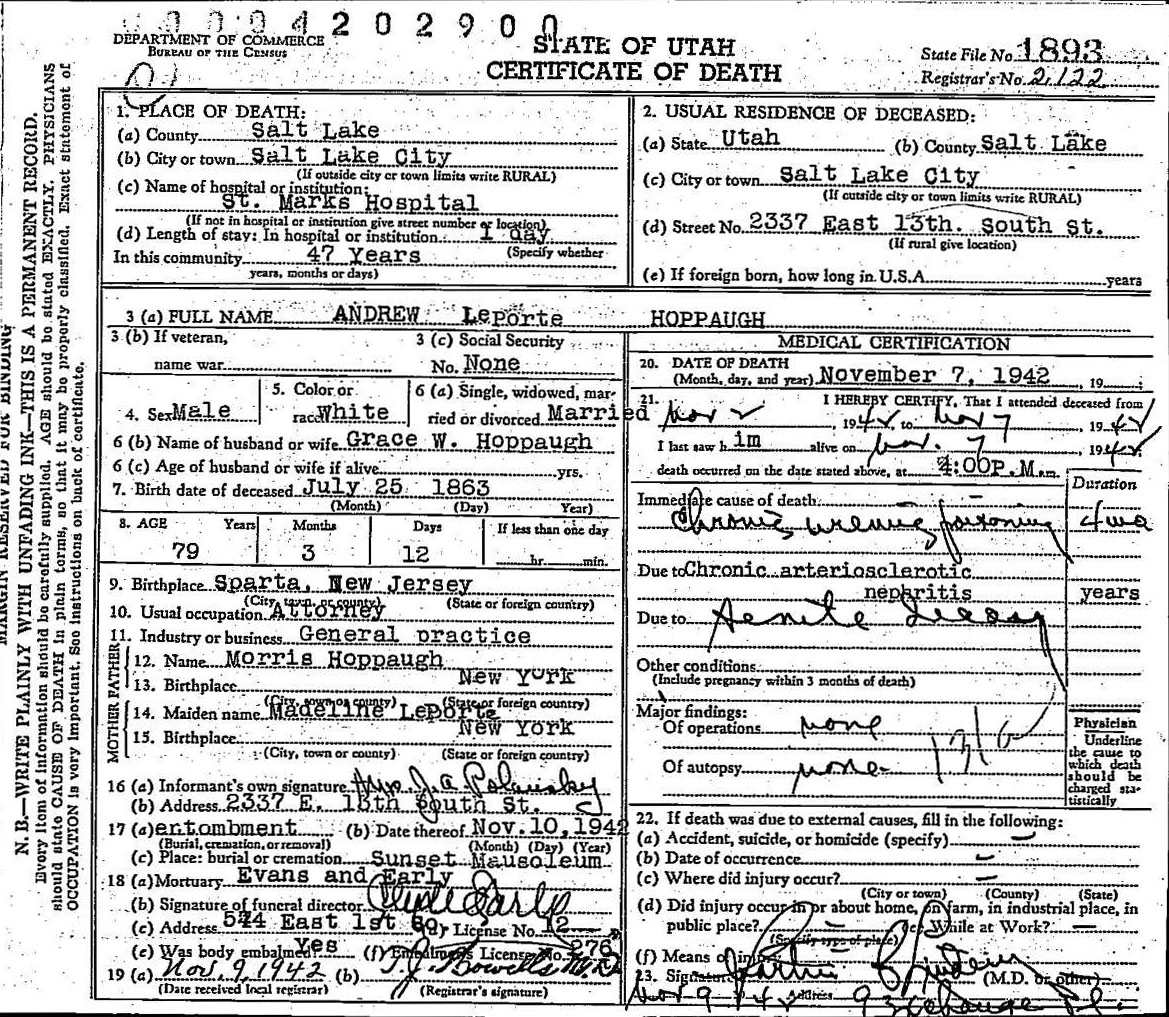 0004202900
DEPARTMENT OF COMMERCE
BUREAU OF THE CENSUS
STATE OF UTAH
CERTIFICATE OF DEATH
State File No. 1893
Registrar's No. 2,122
MARGIN RESERVED FOR BINDING
N. B.—WRITE PLAINLY WITH UNFADING INK—THIS IS A PERMANENT RECORD.
Every item of information should be carefully supplied. AGE should be stated EXACTLY. PHYSICIANS
should state CAUSE OF DEATH in plain terms, so that it may be properly classified. Exact statement of
OCCUPATION is very important. See instructions on back of certificate.
1. PLACE OF DEATH:
(a) County Salt Lake
(b) City or town Salt Lake City
(If outside city or town limits write RURAL)
(c) Name of hospital or institution:
St. Marks Hospital
(If not in hospital or institution give street number or location)
(d) Length of stay: In hospital or institution 1 day
(Specify whether
In this community 47 Years
years, months or days)
2. USUAL RESIDENCE OF DECEASED:
(a) State Utah (b) County Salt Lake
(c) City or town Salt Lake City
(If outside city or town limits write RURAL)
(d) Street No. 2337 East 13th. South St.
(If rural give location)
(e) If foreign born, how long in U.S.A. years
3 (a) FULL NAME ANDREW LePorte HOPPAUGH
3 (b) If veteran,
name war
3 (c) Social Security
No. None
4. Sex Male
5. Color or
race White
6 (a) Single, widowed, mar-
ried or divorced Married
6 (b) Name of husband or wife Grace W. Hoppaugh
6 (c) Age of husband or wife if alive yrs.
7. Birth date of deceased July 25 1863
(Month) (Day) Year)
8. AGE Years Months Days If less than one day
79 3 12 hr. min.
9. Birthplace Sparta, New Jersey
(City, town, or county) (State or foreign country)
10. Usual occupation Attorney
11. Industry or business General practice
FATHER
12. Name Morris Hoppaugh
13. Birthplace New York
(City, town or county) (State or foreign country)
MOTHER
14. Maiden name Madeline LePorte
15. Birthplace New York
(City, town or county) (State or foreign country)
16 (a) Informant's own signature Mrs. J. A. Polansky
(b) Address 2337 E. 13th South St.
17 (a) entombment (b) Date thereof Nov. 10, 1942
(Burial, cremation, or removal) (Month) (Day) (Year)
(c) Place: burial or cremation Sunset Mausoleum
18 (a) Mortuary Evans and Early
(b) Signature of funeral director Clyde Early
(c) Address 544 East 1st So. (d) License No. 12
(e) Was body embalmed Yes (f) Embalmer's License No. 276
19 (a) Nov. 9, 1942 (b)
(Date received local registrar) (Registrar's signature)
MEDICAL CERTIFICATION
20. DATE OF DEATH
(Month, day, and year) November 7, 1942, 19
21. I HEREBY CERTIFY, That I attended deceased from
Nov 2, 1942, to Nov 7, 1942
I last saw h im alive on Nov. 7 1942
death occurred on the date stated above, at 4:00P.M. m.
Duration
Immediate cause of death
Chronic uremic poisoning
Due to Chronic arteriosclerotic
nephritis years
Due to
Other conditions
(Include pregnancy within 3 months of death)
Major findings:
Of operations none
Of autopsy none
131a
Physician
Underline
the cause to
which death
should be
charged sta-
tistically
22. If death was due to external causes, fill in the following:
(a) Accident, suicide, or homicide (specify) —
(b) Date of occurrence —
(c) Where did injury occur? —
(City or town) (County) (State)
(d) Did injury occur in or about home, on farm, in industrial place, in
public place? (e) While at Work? —
(Specify type of place)
(f) Means of injury
23. Signature (M.D. or other)
Nov 9 1942 Address 9 Exchange Pl.